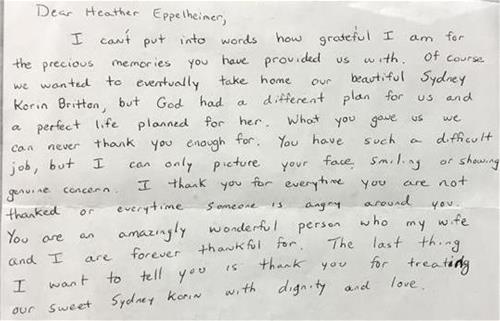 Dear Heather Eppelheimer,
I can't put into words how grateful I am for
the precious memories you have provided us with. Of course
we wanted to eventually take home our beautiful Sydney
Korin Britton, but God had a different plan for us and
a perfect life planned for her. What you gave us we
can never thank you enough for. You have such a difficult
job, but I can only picture your face smiling or showing
genuine concern. I thank you for everytime you are not
thanked or everytime someone is angry around you.
You are an amazingly wonderful person who my wife
and I are forever thankful for. The last thing
I want to tell you is thank you for treating
our sweet Sydney Korin with dignity and love.